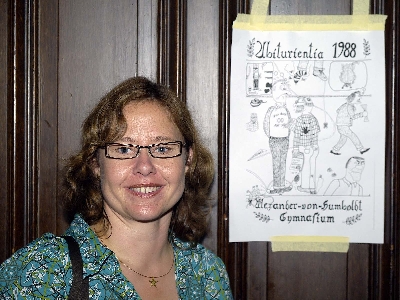 Abiturientia 1988
Alexander-von-Humboldt
Gymnasium